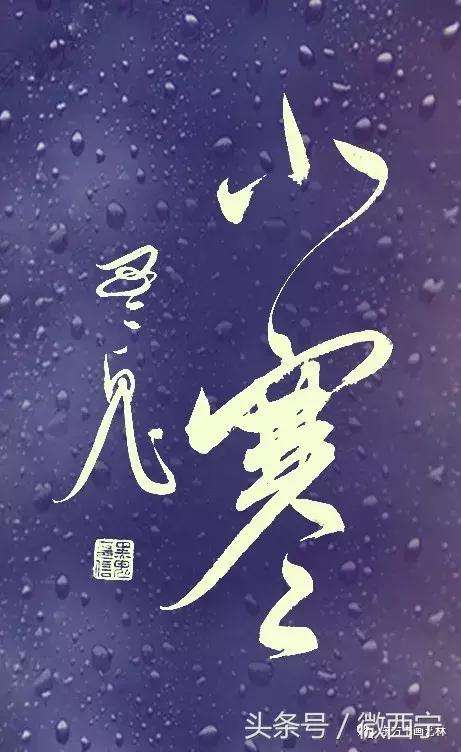 小寒
墨鬼
头条号 / 微西宁